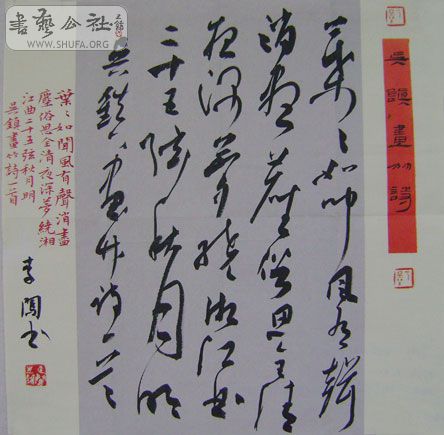 吳鎮畫竹詩
葉〻如聞風有聲
消盡塵俗思全清
夜深夢繞湘江曲
二十五弦秋月明
吳鎮畫竹詩一首
葉〻如聞風有聲消盡
塵俗思全清夜深夢繞湘
江曲二十五弦秋月明
吳鎮畫竹詩一首
李闖书
書藝公社
WWW.SHUFA.ORG